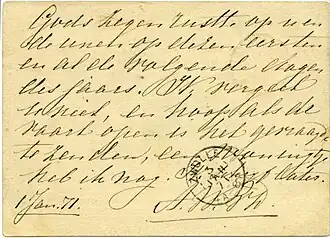 Gods zegen ruste op u en
de uwen op dezen eersten
en al de volgende dagen
des jaars. Ik vergeet
u niet, en hoop als de
vaart open is het gevraagde
te zenden, een
heb ik nog.
1 Jan. 71.